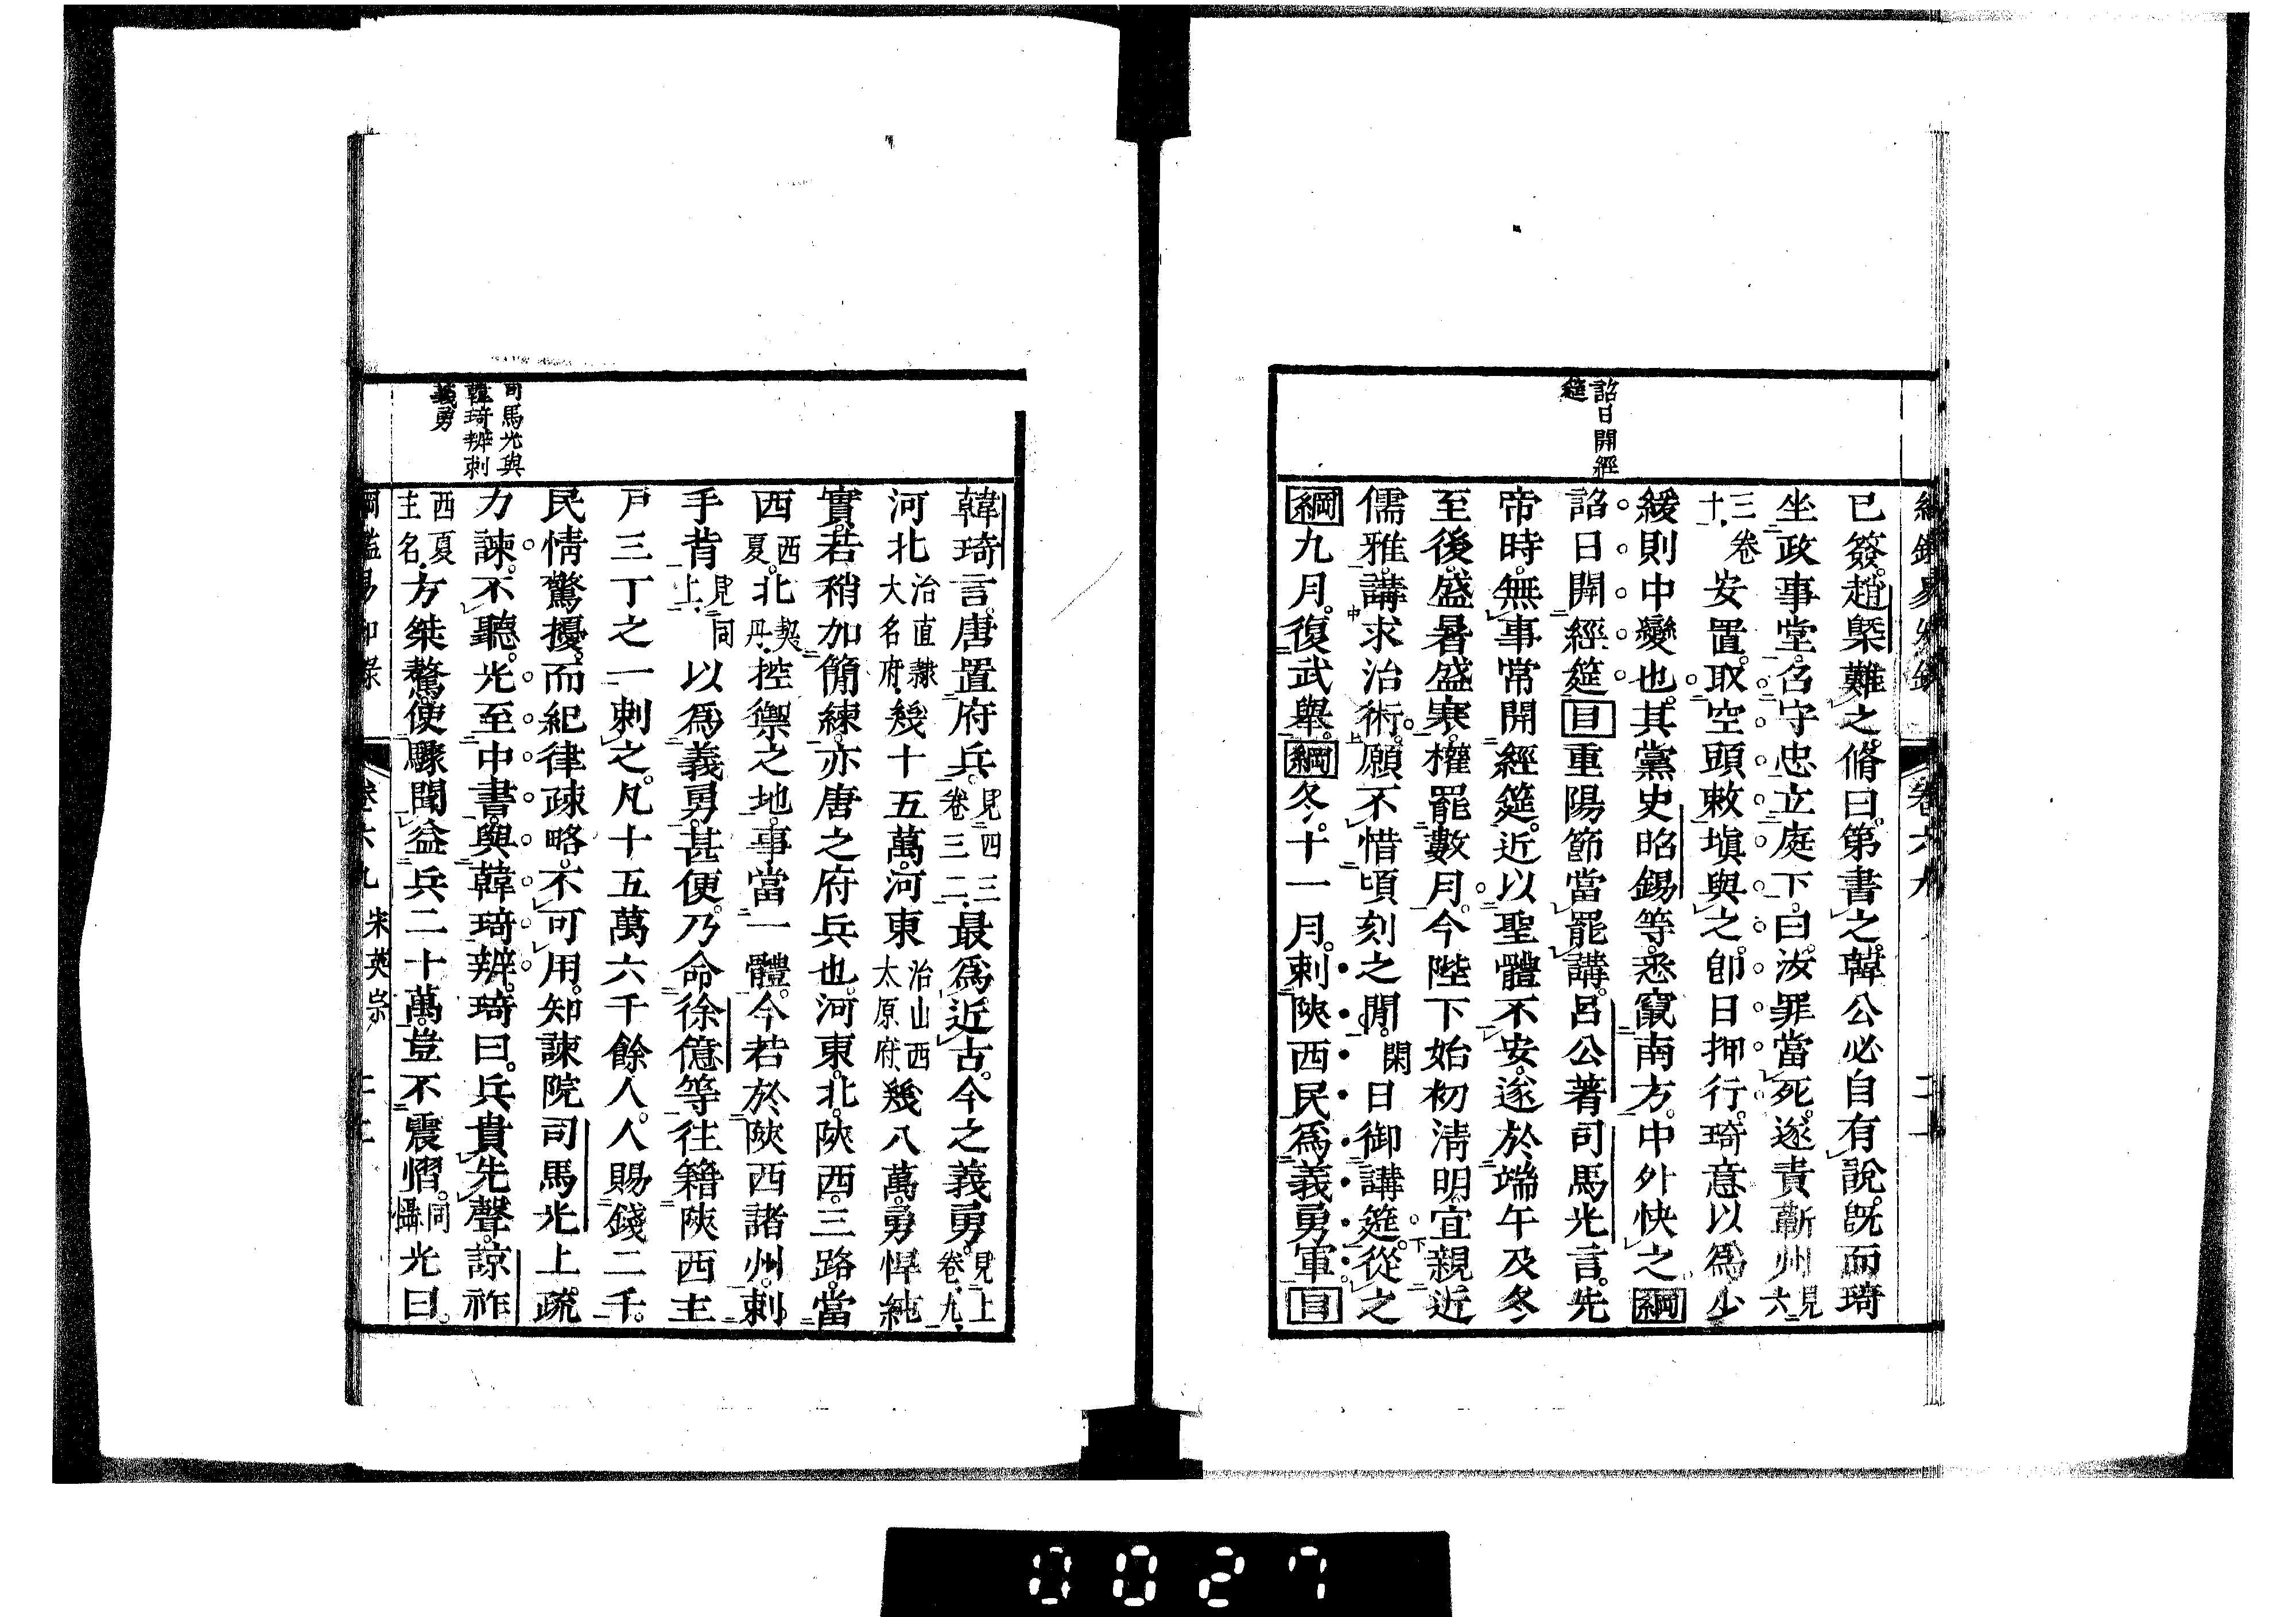 詔日開經
筵
已簽。趙槩難之。脩曰。第書之。韓公必自有說。旣而琦
坐政事堂。召守忠立庭下。曰。汝罪當死。遂責蘄州見六
三卷十安置。取空頭敕塡與之。卽日押行。琦意以爲少
緩則中變也。其黨史昭錫等。悉竄南方。中外快之綱
詔日開經筵目重陽節當罷講。呂公著司馬光言。先
帝時。無事常開經筵。近以聖體不安。遂於端午及冬
至後。盛暑盛寒。權罷數月。今陛下始初淸明。宜親近
儒雅。講求治術。願不惜頃刻之閒。閑日御講筵。從之
綱九月。復武舉。綱冬。十一月。刺陝西民爲義勇軍。目
司馬光與
韓琦辨刺
義勇
韓琦言。唐置府兵。見四三卷三二最爲近古。今之義勇。見上卷九
河北治直隸大名府幾十五萬。河東治山西太原府幾八萬。勇悍純
實。若稍加簡練。亦唐之府兵也。河東。北。陝西。三路。當
西西夏。北契丹控禦之地。事當一體。今若於陝西諸州。刺
手背見同上以爲義勇。甚便。乃命徐億等往籍陝西主
戶三丁之一刺之。凡十五萬六千餘人。人賜錢二千。
民情驚擾。而紀律疎略。不可用。知諫院司馬光上疏
力諫。不聽。光至中書。與韓琦辨。琦曰。兵貴先聲。諒祚
西夏主名方桀驁。使驟聞益兵二十萬。豈不震慴。同懾光曰。
卷六九 宋英宗 二二